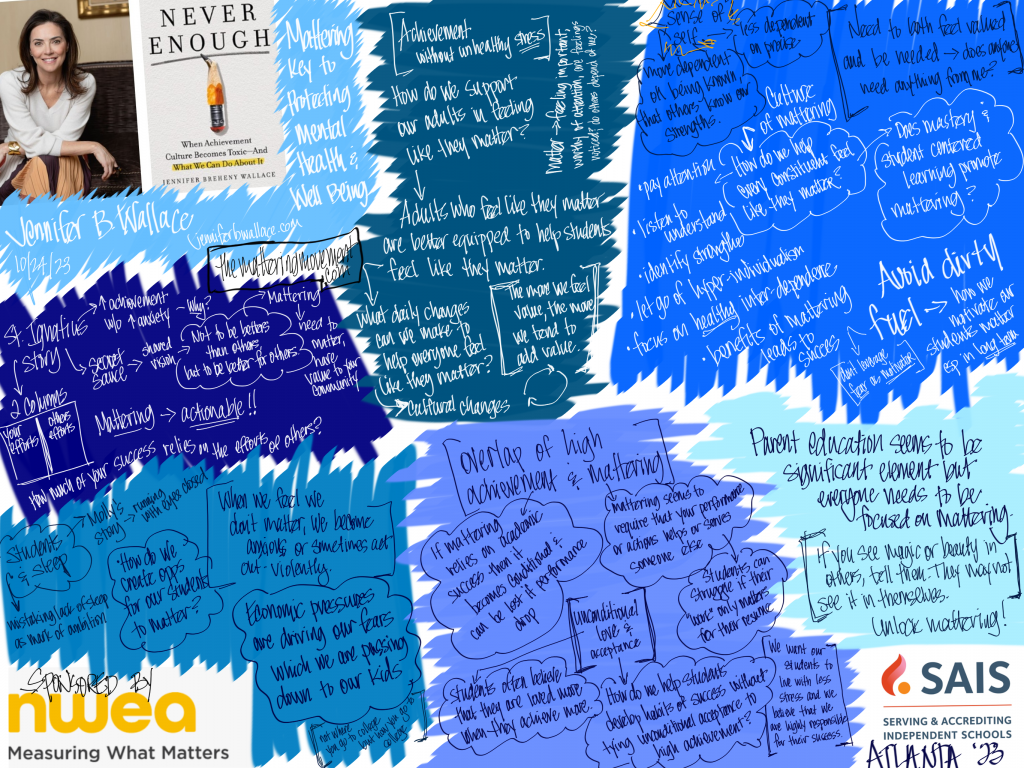 NEVER
ENOUGH
When Achievement
Culture Becomes Toxic—And
What We Can Do About It
JENNIFER BREHENY WALLACE
Mattering
key to
Protecting
Mental
Health &
Well Being
Jennifer B. Wallace
10/24/23
jenniferbwallace.com
the mattering movement
.com
St. Ignatius
Story
↑ achievement
w/o ↑ anxiety
Why?
secret
sauce
shared
vision
Not to be betters
than others
but to be better for others
Mattering
need to
matter,
have
value to your
community
2 columns
Your
efforts
others
efforts
Mattering → actionable!!
How much of your success relies on the efforts of others?
[Achievement
without unhealthy stress]
How do we support
our adults in feeling
like they matter?
Matter → feeling important,
worth of attention, are feelings
noticed, do others depend of me?
Adults who feel like they matter
are better equipped to help students
feel like they matter.
What daily changes
can we make to
help everyone feel
like they matter?
→ Cultural changes
The more we feel
value, the more
we tend to
add value.
sense of
self
less dependent
on praise
more dependent
on being known
that others know our
strengths.
Need to both feel valued
and be needed → does anyone
need anything from me?
Culture
of mattering
How do we help
every constituent feel
like they matter?
Does mastery &
student centered
learning promote
mattering?
• pay attention
• listen to
understand
• identify strengths
• let go of hyper-individualism
focus on healthy inter-dependence
• benefits of mattering
leads to
success
Avoid dirty
fuel → how we
motivate our
students matter
esp in long term
don't leverage
fear as motivator
Students
& sleep
Molly's
story
running
with eyes closed
mistaking lack of sleep
as mark of ambition
How do we
create opps
for our students
to matter?
When we feel we
don't matter, we become
anxious or sometimes act
out violently.
Economic pressures
are driving our fears
which we are passing
down to our kids.
not where
you go to college
but how you do
college
[overlap of high
achievement & mattering]
If mattering
relies on academic
success then it
becomes conditional &
can be lost if performance
drop
Mattering seems to
require that your performance
or actions helps or serves
someone else
Students can
struggle if their
"work" only matters
for their resume
unconditional
love &
acceptance
Students often believe
that they are loved more
when they achieve more.
How do we help students
develop habits of success without
tying unconditional acceptance to
high achievement?
We want our
students to
live with less
stress and we
believe that we
are highly responsible
for their success.
Parent education seems to be
significant element but
everyone needs to be
focused on mattering.
If you see magic or beauty in
others, tell them. They may not
see it in themselves.
Unlock mattering!
SPONSORED BY
nwea
Measuring What Matters
SAIS
SERVING & ACCREDITING
INDEPENDENT SCHOOLS
ATLANTA '23